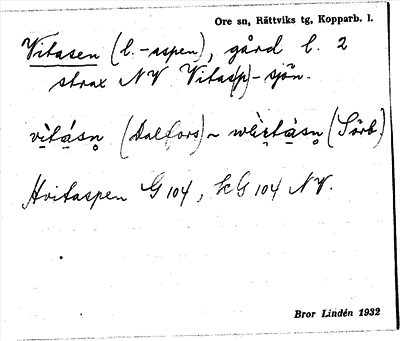 Ore sn, Rättviks tg, Kopparb. l.
Vitasen (l. -aspen), gård l. 2
strax NV Vitas(p)-sjön.
vìtásn̥ (Dalfors) ~ wìtàsn̥ (Sörb.)
Hvitaspen G 104, kG 104 NV.
Bror Lindén 1932